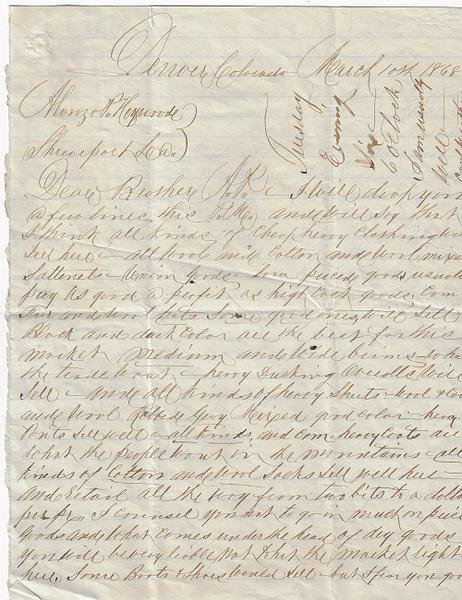 Denver Colorado March 10th 1868
Alonzo P.
Shreveport La.
Tuesday
Evening
6 oClock
well
Dear Brother A.P. I will drop you
a few lines this P.M. and will say that
I think all kinds of cheap heavy clothing will
sell here all wool and cotton and wool mixed
Sattenets Union Goods low priced goods usually
pay as good a profit as high cost goods Com
Fur and wool hats some good ones will sell
Black and dark color are the best for this
market medium and wide brims what
the trade want heavy Ducking Overalls will
sell and all kinds of heavy shirts wool
and wool Grey Mixed good color heavy
Pants sell well all kinds, and com. heavy Coats are
what the people want in the mountains all
kinds of Cotton and wool Socks sell well here
and retail all the way from two bits to a dollar
per Pr. I counsel you not to go in much on piece
goods and what comes under the head of dry goods
you will be very liable not to hit the market right
here, Some Boots & Shoes would sell but I fear you